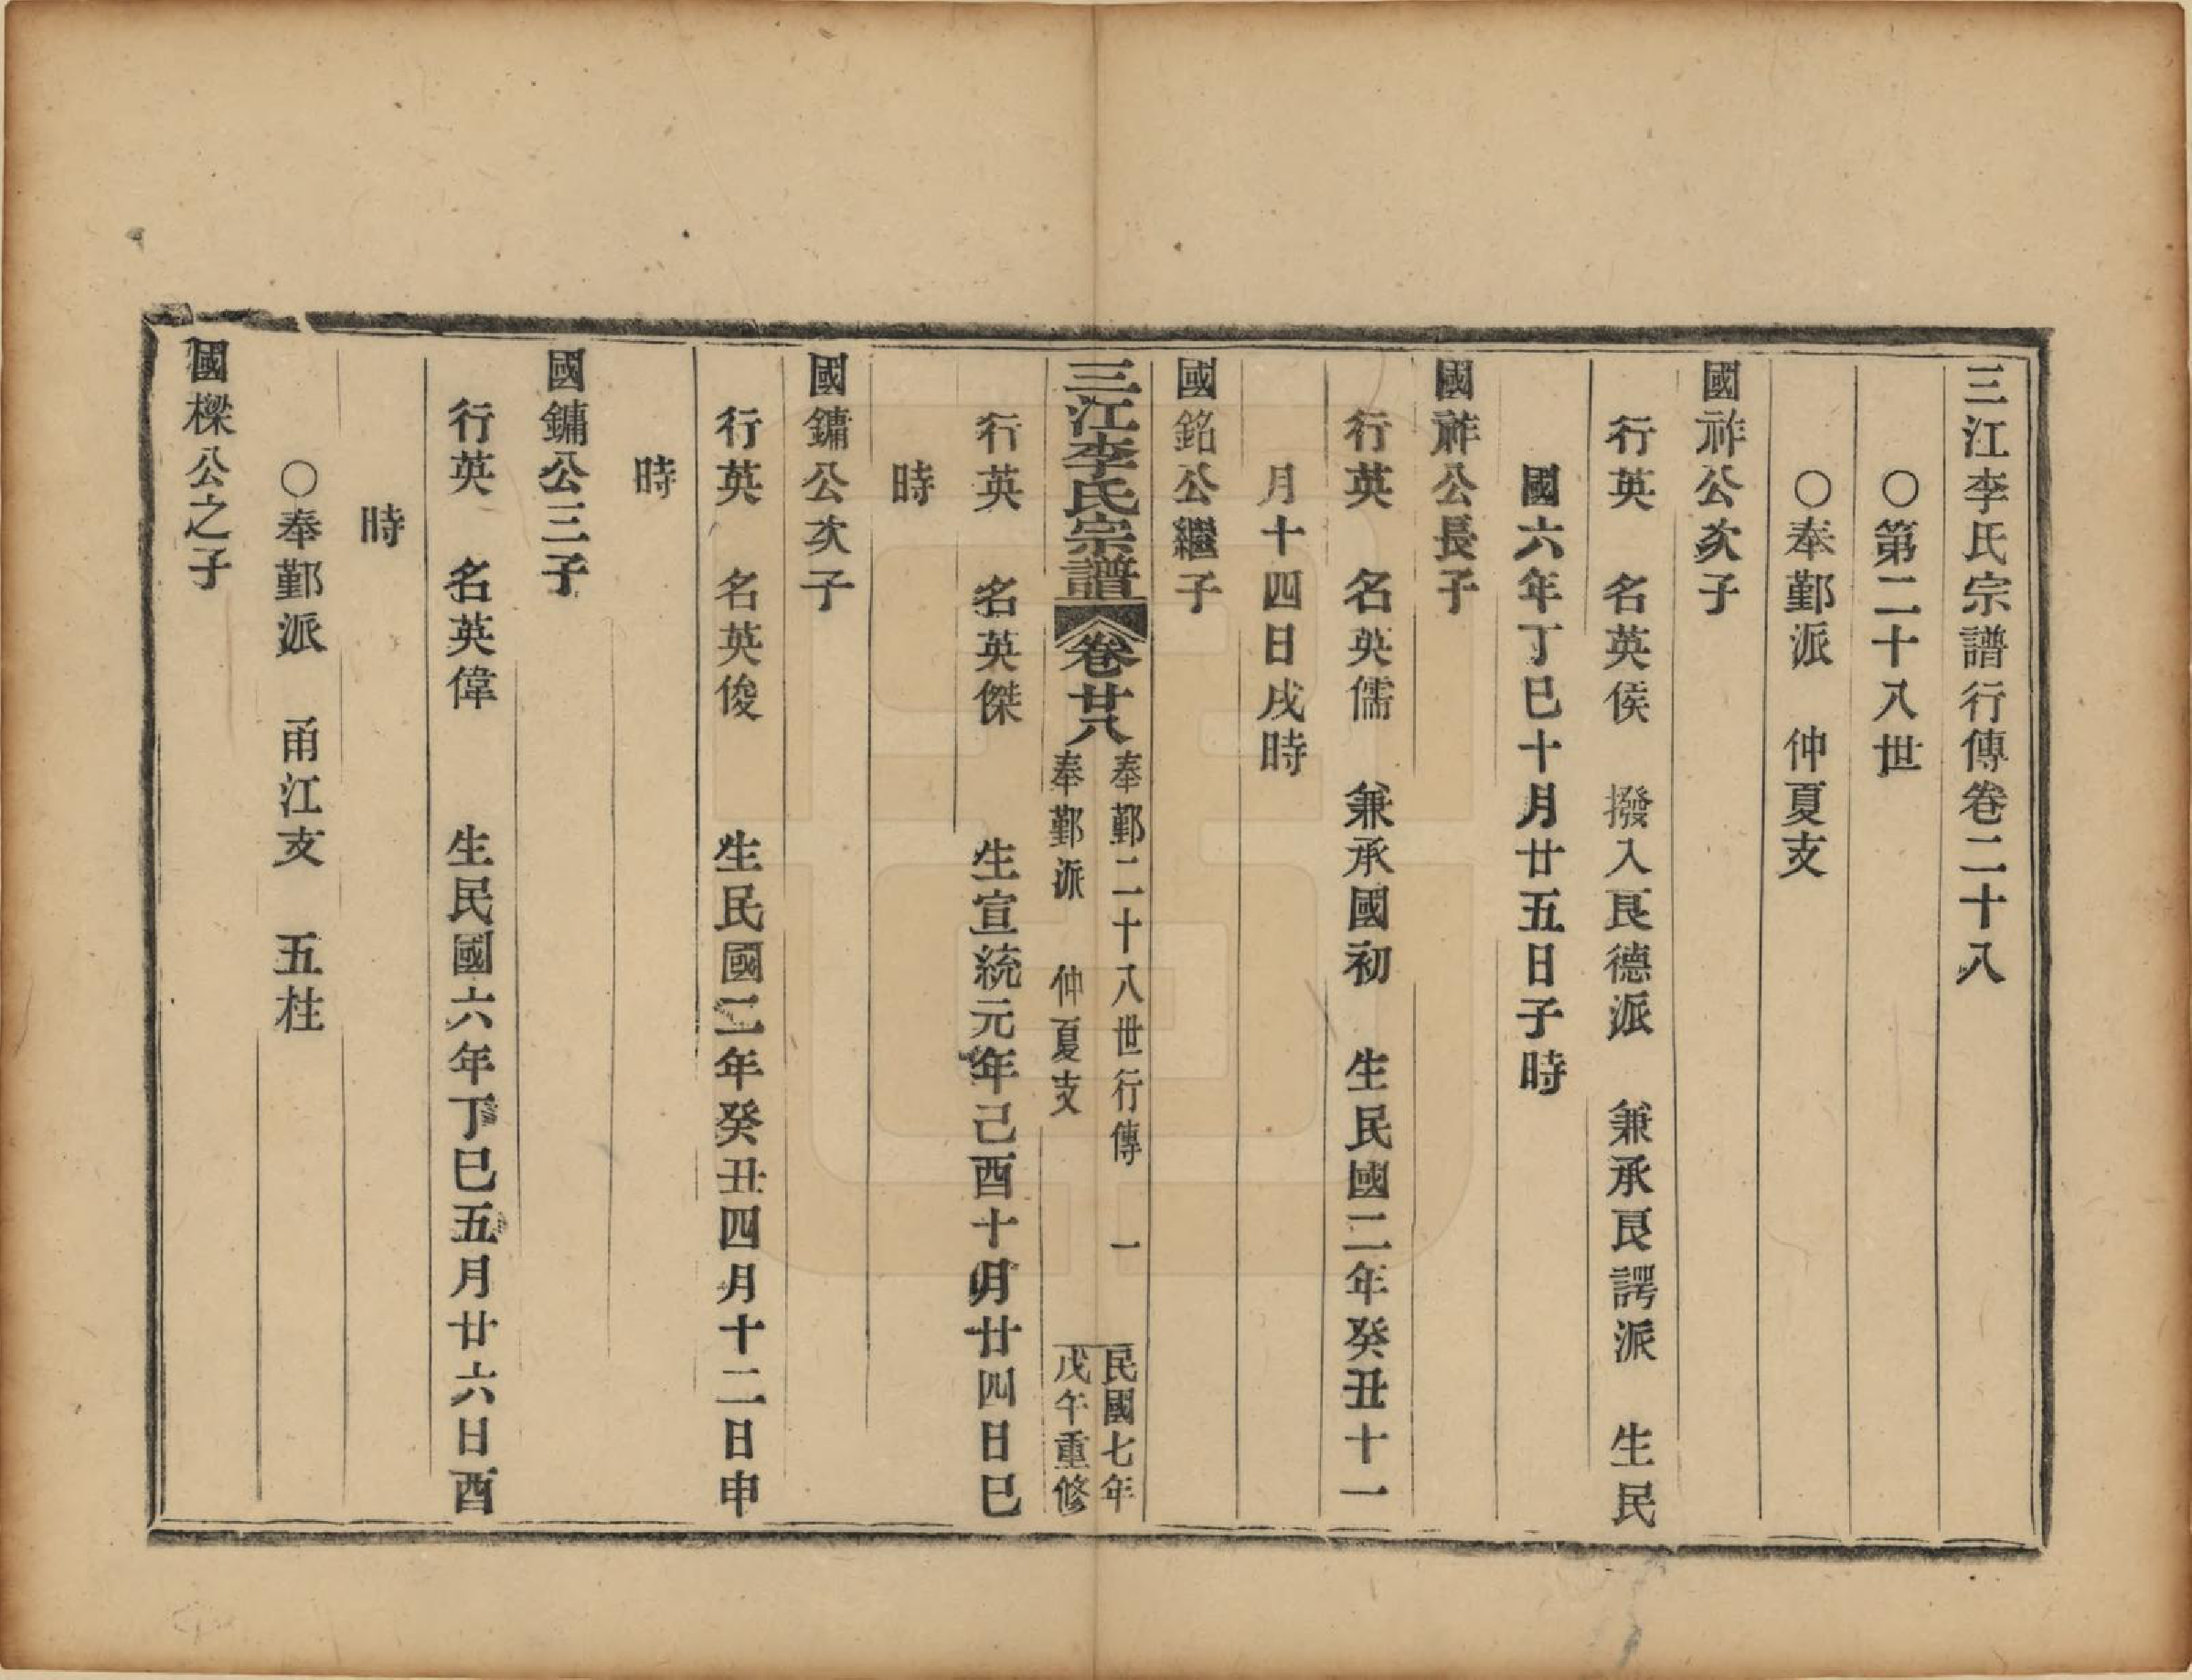 三江李氏宗譜行傳卷二十八
○第二十八世
○奉鄞派　仲夏支
國祚公次子
行英　名英侯　撥入艮德派　兼承艮諤派　生民
國六年丁巳十月廿五日子時
國祚公長子
行英　名英儒　兼承國初　生民國二年癸丑十一
月十四日戌時
國銘公繼子
三江李氏宗譜　卷廿八　奉鄞二十八世行傳　一　民國七年
奉鄞派　仲夏支　戊午重修
行英　名英傑　生宣統元年己酉十月廿四日巳
時
國鏞公次子
行英　名英俊　生民國二年癸丑四月十二日申
時
國鏞公三子
行英　名英偉　生民國六年丁巳五月廿六日酉
時
○奉鄞派　甬江支　五柱
國樑公之子